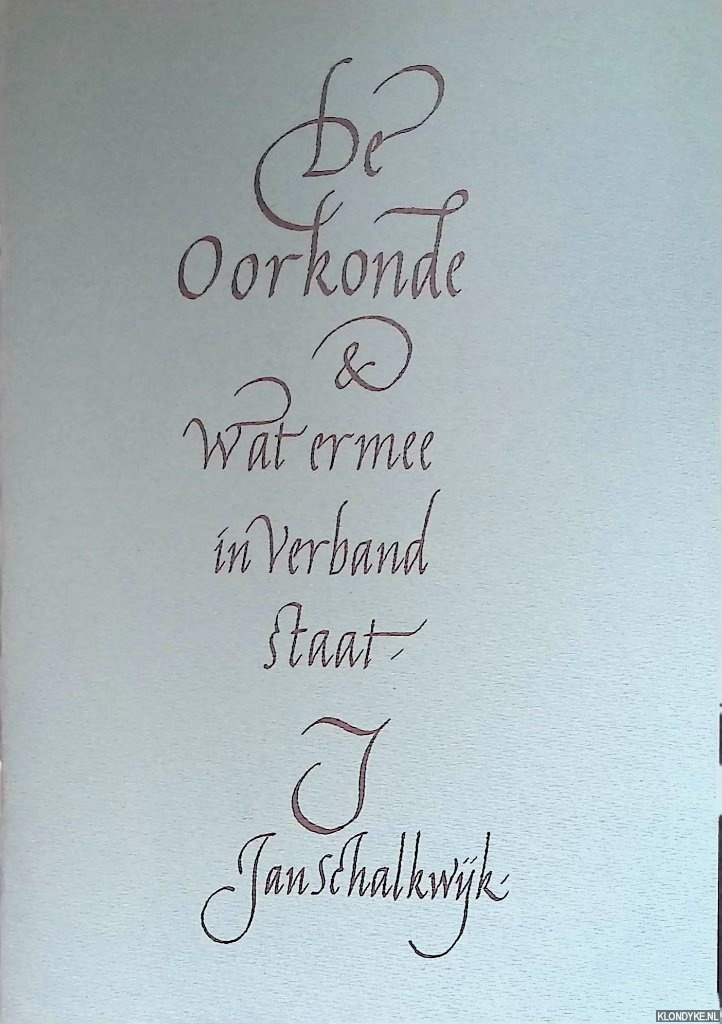 De
Oorkonde
&
Wat ermee
in Verband
staat.
I
Jan Schalkwijk.
KLONDYKE.NL